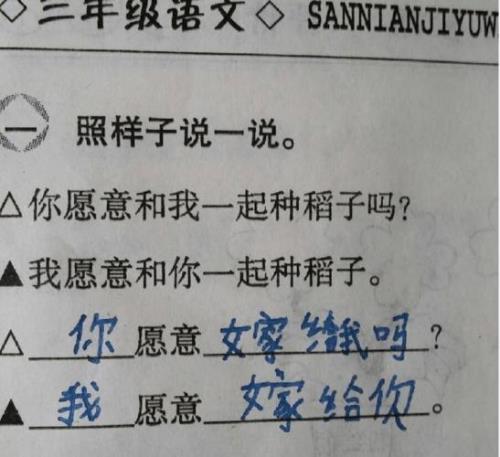 ◇三年级语文◇ SANNIANJIYUW
一 照样子说一说。
△你愿意和我一起种稻子吗?
▲我愿意和你一起种稻子。
△你愿意嫁给我吗?
▲我愿意嫁给你。